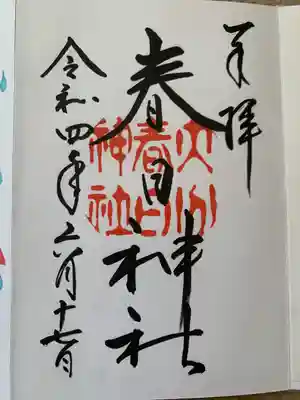 奉拝
春日神社
大分春日神社
令和四年六月十七日